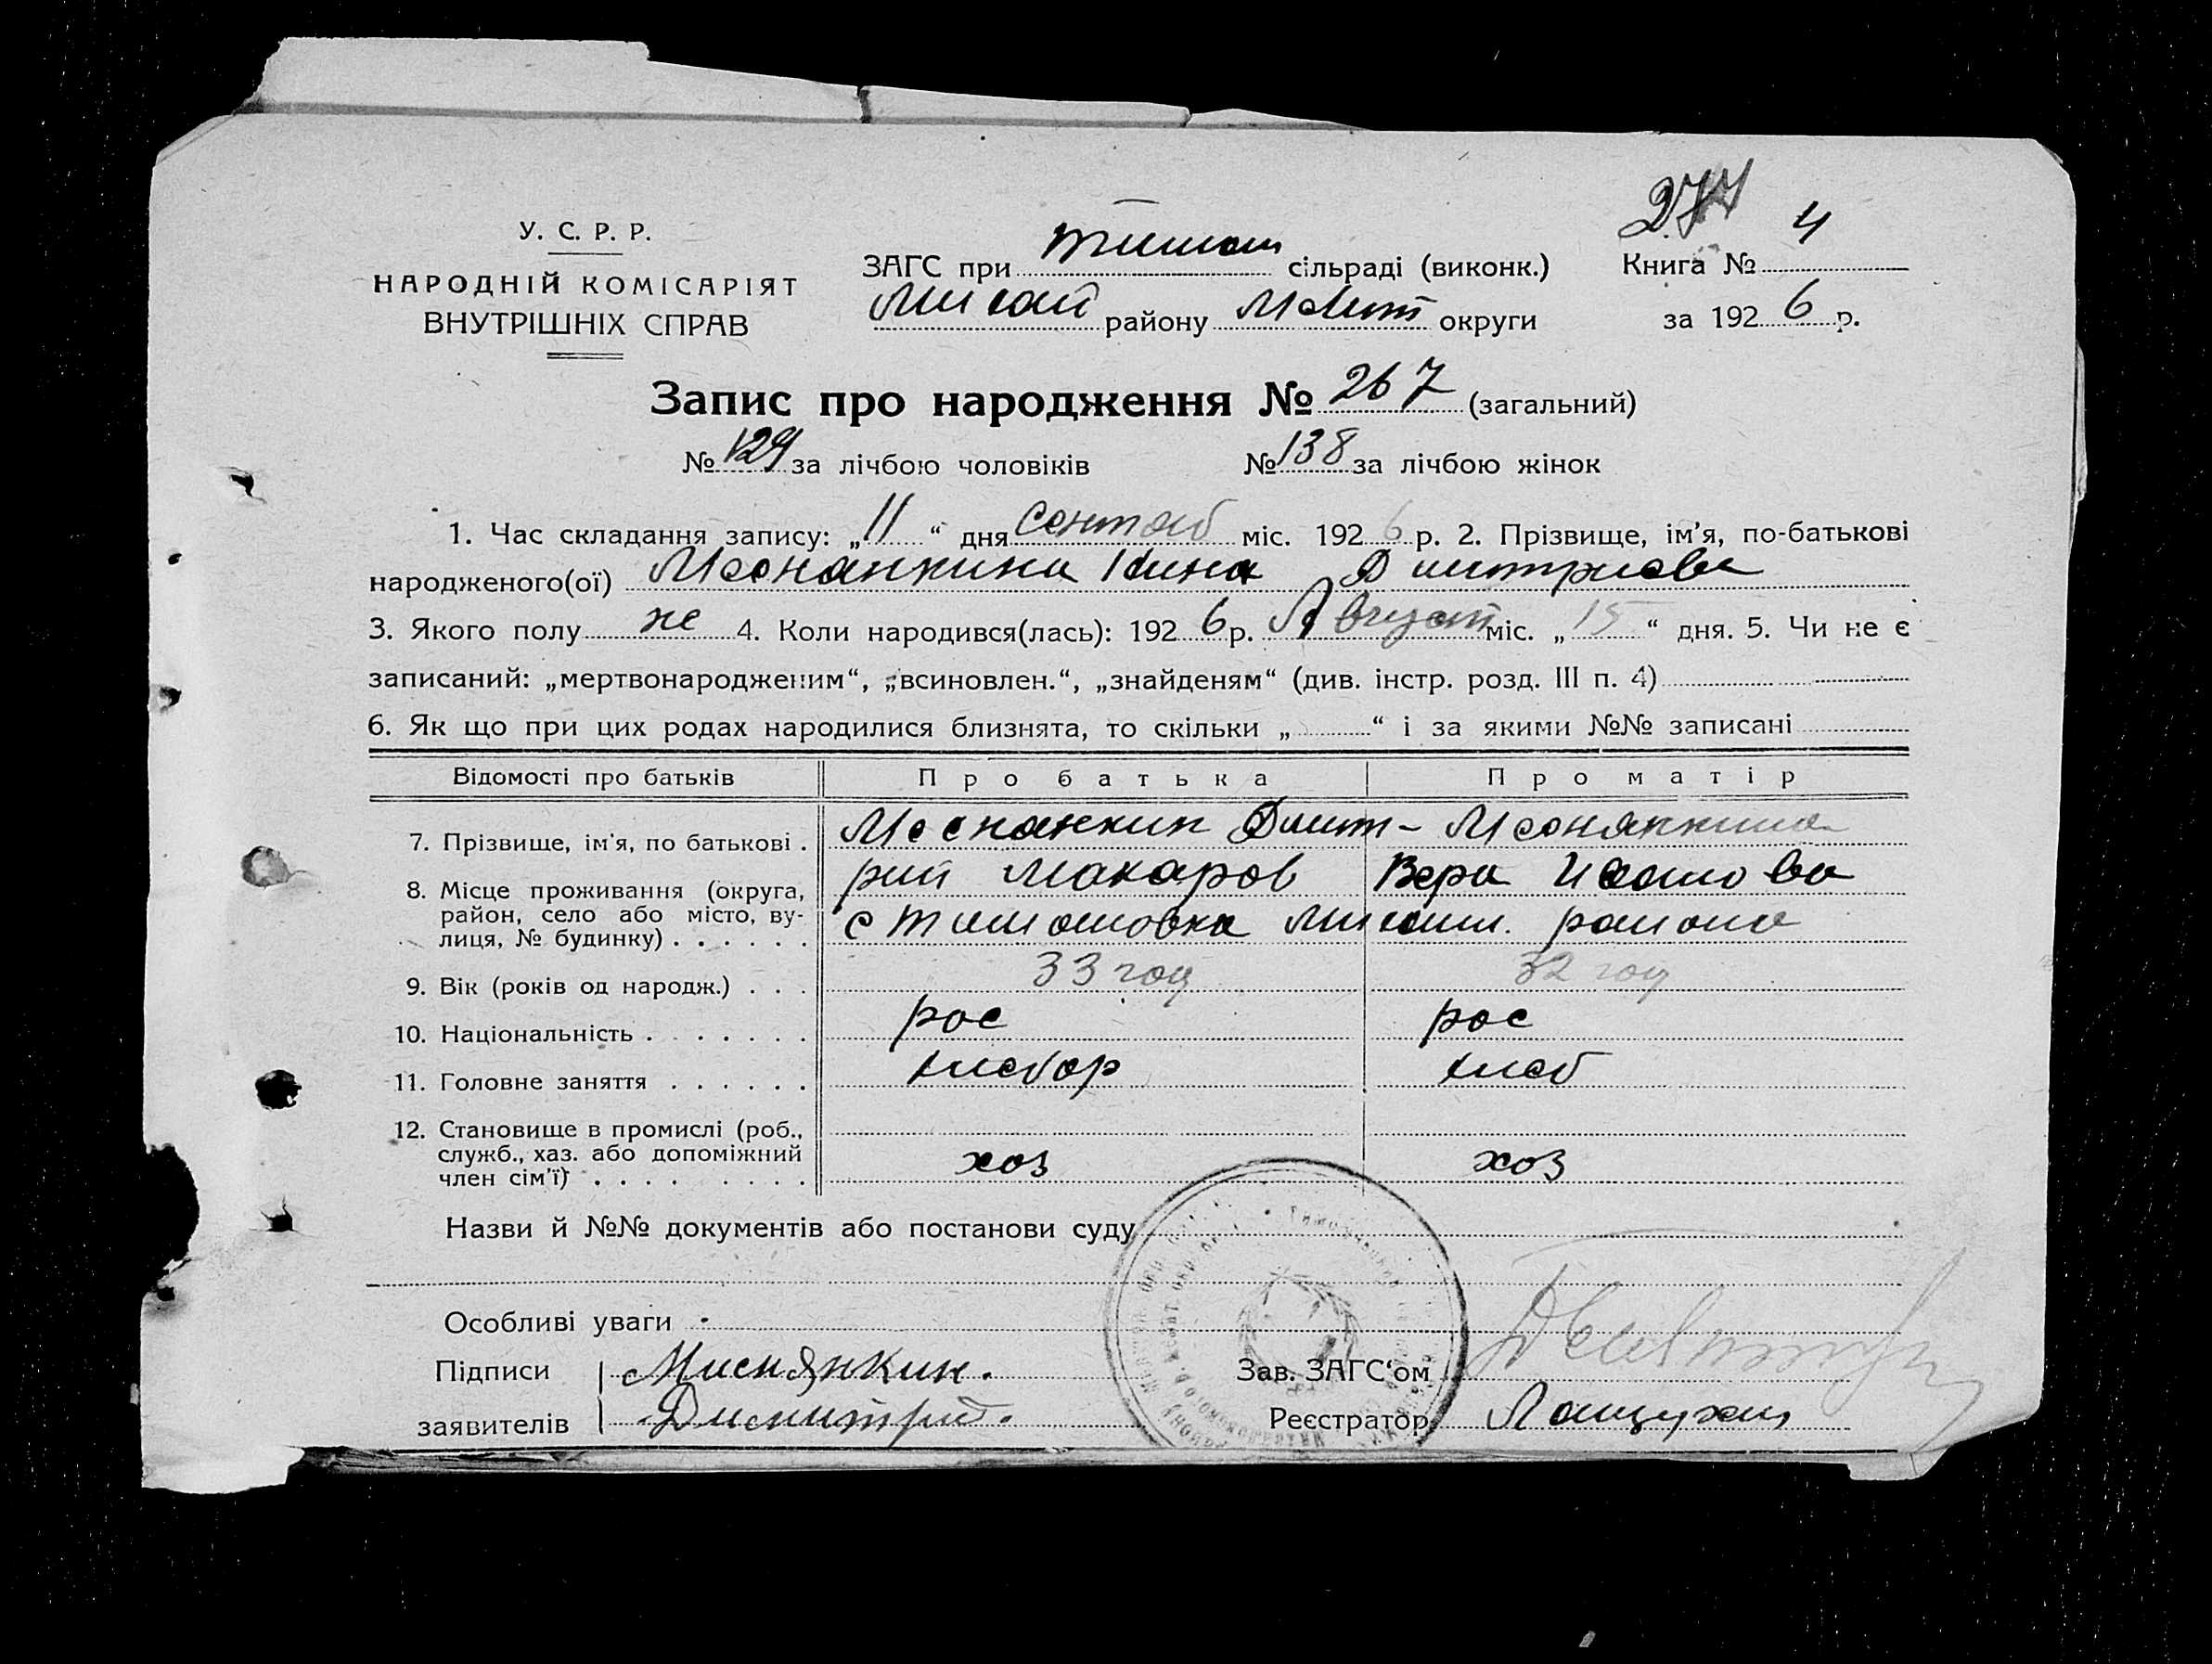 277 4
У. С. Р. Р.
НАРОДНІЙ КОМІСАРІЯТ
ВНУТРІШНІХ СПРАВ
ЗАГС при Тимош сільраді (виконк.)
Михай району Мелит округи
Книга №
за 1926 р.
Запис про народження № 267 (загальний)
№ 129 за лічбою чоловіків № 138 за лічбою жінок
1. Час складання запису: „11“ дня Сентяб міс. 1926 р. 2. Прізвище, ім’я, по-батькові
народженого(ої) Меснянкина Нина Дмитриева
3. Якого полу же 4. Коли народився(лась): 1926 р. Август міс. „15“ дня. 5. Чи не є
записаний: „мертвонародженим“, „всиновлен.“, „знайденям“ (див. інстр. розд. III п. 4)
6. Як що при цих родах народилися близнята, то скільки „ “ і за якими №№ записані
Відомості про батьків Про батька Про матір
7. Прізвище, ім'я, по батькові . Меснянкин Дмит- Меснянкина
рий Макаров Вера
8. Місце проживання (округа,
район, село або місто, ву-
лиця, № будинку) . . . . . . с Тимошовка Михайл. района
9. Вік (років од народж.) . . . 33 год 32 год
10. Національність . . . . . . . рос рос
11. Головне заняття . . . . . . хлебор хлеб
12. Становище в промислі (роб.,
служб., хаз. або допоміжний
член сім’ї) . . . . . . . . хоз хоз
Назви й №№ документів або постанови суду
Особливі уваги
Підписи Миснянкин.
заявителів Димитрий.
Зав. ЗАГС‘ом
Реєстратор